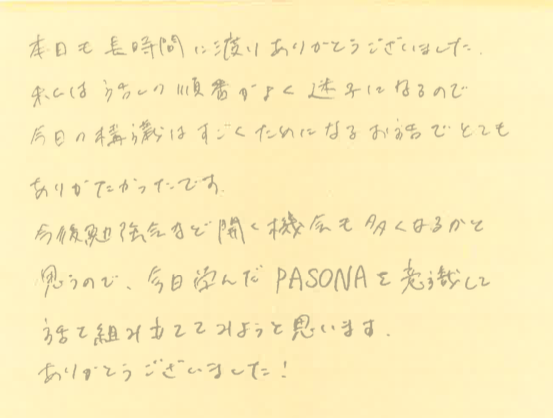 本日も長時間に渡りありがとうございました。
私は話しの順番がよく迷子になるので
今日の構識はすごくためになるお話でとても
ありがたかったです。
今後勉強会など開く機会も多くなるかと
思うので、今日学んだPASONAを意識して
話を組み立ててみようと思います。
ありがとうございました！